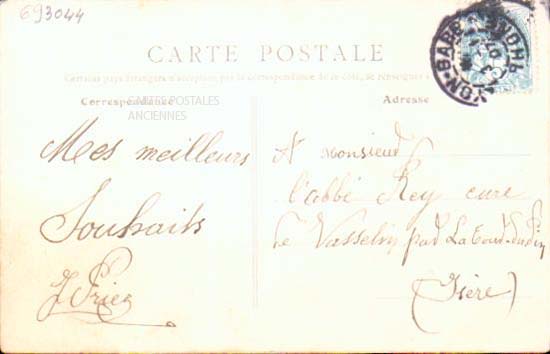 693044
CARTE POSTALE
Certains pays étrangers n'acceptent pas la correspondance de ce côté, se renseigner à
Correspondance
CARTES POSTALES
ANCIENNES
Adresse
Mes meilleurs
Souhaits
A Monsieur
l'abbé Rey curé
de Vasselin par La Tour-du-Pin
(Isère)